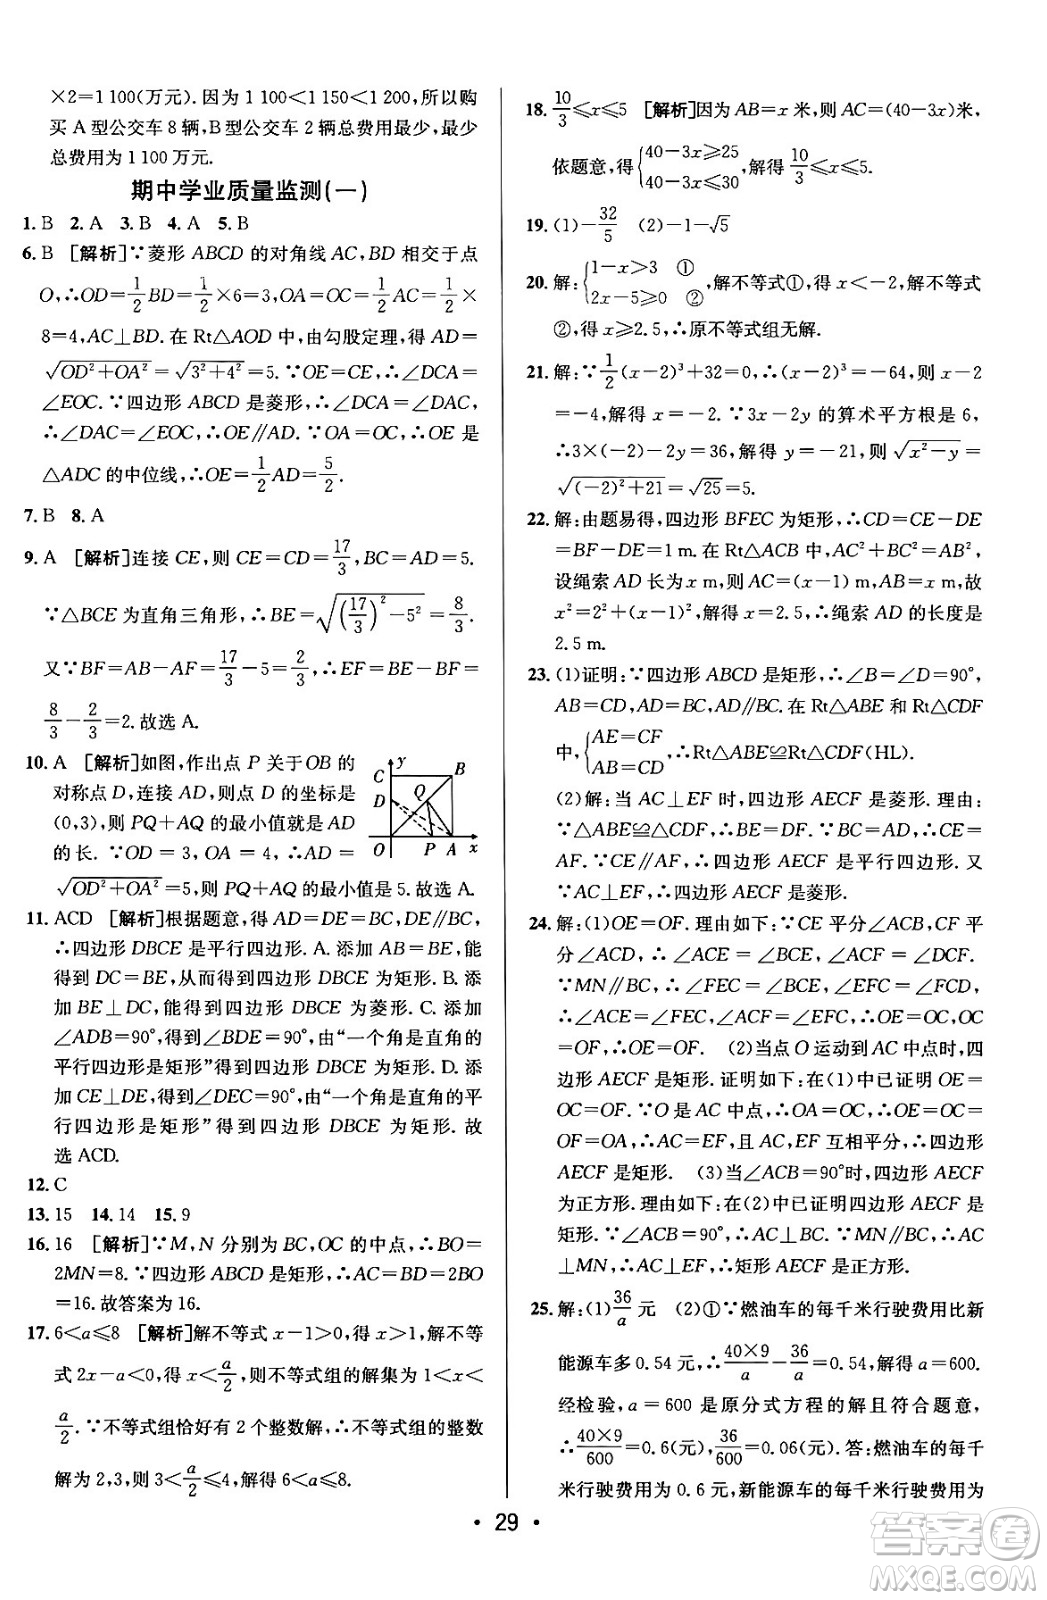 ×2=1 100(万元). 因为 1 100<1 150<1 200, 所以购
买 A 型公交车 8 辆, B 型公交车 2 辆总费用最少, 最少
总费用为 1 100 万元.
期中学业质量监测(一)
1. B 2. A 3. B 4. A 5. B
6. B [解析]∵菱形 ABCD 的对角线 AC, BD 相交于点
O, ∴OD=1/2BD=1/2×6=3, OA=OC=1/2AC=1/2×
8=4, AC⊥BD. 在 Rt△AOD 中, 由勾股定理, 得 AD=
√(OD²+OA²)=√(3²+4²)=5. ∵OE=CE, ∴∠DCA=
∠EOC. ∵四边形 ABCD 是菱形, ∴∠DCA=∠DAC,
∴∠DAC=∠EOC, ∴OE∥AD. ∵OA=OC, ∴OE 是
△ADC 的中位线, ∴OE=1/2AD=5/2.
7. B 8. A
9. A [解析]连接 CE, 则 CE=CD=17/3, BC=AD=5.
∵△BCE 为直角三角形, ∴BE=√((17/3)²-5²)=8/3.
又∵BF=AB-AF=17/3-5=2/3, ∴EF=BE-BF=
8/3-2/3=2. 故选 A.
10. A [解析]如图, 作出点 P 关于OB 的
对称点 D, 连接 AD, 则点 D 的坐标是
(0,3), 则 PQ+AQ 的最小值就是 AD
的长. ∵OD=3, OA=4, ∴AD=
√(OD²+OA²)=5, 则 PQ+AQ 的最小值是 5. 故选 A.
y
C B
D Q
O P A x
11. ACD [解析]根据题意, 得 AD=DE=BC, DE∥BC,
∴四边形 DBCE 是平行四边形. A. 添加 AB=BE, 能
得到 DC=BE, 从而得到四边形 DBCE 为矩形. B. 添
加 BE⊥DC, 能得到四边形 DBCE 为菱形. C. 添加
∠ADB=90°, 得到∠BDE=90°, 由“一个角是直角的
平行四边形是矩形”得到四边形 DBCE 为矩形. D. 添
加 CE⊥DE, 得到∠DEC=90°, 由“一个角是直角的平
行四边形是矩形”得到四边形 DBCE 为矩形. 故
选 ACD.
12. C
13. 15 14. 14 15. 9
16. 16 [解析]∵M, N 分别为 BC, OC 的中点, ∴BO=
2MN=8. ∵四边形 ABCD 是矩形, ∴AC=BD=2BO
=16. 故答案为 16.
17. 6<a≤8 [解析]解不等式 x-1>0, 得 x>1, 解不等
式 2x-a<0, 得 x<a/2, 则不等式组的解集为 1<x<
a/2. ∵不等式组恰好有 2 个整数解, ∴不等式组的整数
解为 2,3, 则 3<a/2≤4, 解得 6<a≤8.
18. 10/3≤x≤5 [解析]因为 AB=x 米, 则 AC=(40-3x)米,
依题意, 得{40-3x≥25 40-3x≤30, 解得10/3≤x≤5.
19. (1)-32/5 (2)-1-√5
20. 解: {1-x>3 ① 2x-5≥0 ②, 解不等式①, 得 x<-2, 解不等式
②, 得 x≥2.5, ∴原不等式组无解.
21. 解: ∵1/2(x-2)³+32=0, ∴(x-2)³=-64, 则 x-2
=-4, 解得 x=-2. ∵3x-2y 的算术平方根是 6,
∴3×(-2)-2y=36, 解得 y=-21, 则 √(x²-y)=
√((-2)²+21)=√25=5.
22. 解: 由题易得, 四边形 BFEC 为矩形, ∴CD=CE-DE
=BF-DE=1 m. 在 Rt△ACB 中, AC²+BC²=AB²,
设绳索 AD 长为 x m, 则 AC=(x-1)m, AB=x m, 故
x²=2²+(x-1)², 解得 x=2.5, ∴绳索 AD 的长度是
2.5 m.
23. (1)证明: ∵四边形 ABCD 是矩形, ∴∠B=∠D=90°,
AB=CD, AD=BC, AD∥BC. 在 Rt△ABE 和 Rt△CDF
中, {AE=CF AB=CD, ∴Rt△ABE≌Rt△CDF(HL).
(2)解: 当 AC⊥EF 时, 四边形 AECF 是菱形. 理由:
∵△ABE≌△CDF, ∴BE=DF. ∵BC=AD, ∴CE=
AF. ∵CE∥AF, ∴四边形 AECF 是平行四边形. 又
∵AC⊥EF, ∴四边形 AECF 是菱形.
24. 解: (1)OE=OF. 理由如下: ∵CE 平分∠ACB, CF 平
分∠ACD, ∴∠ACE=∠BCE, ∠ACF=∠DCF.
∵MN∥BC, ∴∠FEC=∠BCE, ∠EFC=∠DCF,
∴∠ACE=∠FEC, ∠ACF=∠EFC, ∴OE=OC, OC
=OF, ∴OE=OF. (2)当点 O 运动到 AC 中点时, 四边
形 AECF 是矩形. 证明如下: 由(1)可得, 已证明 OE=
OC=OF. ∵O 是 AC 中点, ∴OA=OC, ∴OE=OC=
OF=OA, ∴AC=EF, 且 AC, EF 互相平分, ∴四边形
AECF 是矩形. (3)当∠ACB=90°时, 四边形 AECF
为正方形. 理由如下: 在(2)中已证明四边形 AECF 是
矩形. ∵∠ACB=90°, ∴AC⊥BC. ∵MN∥BC, ∴AC
⊥MN, ∴AC⊥EF, ∴矩形 AECF 是正方形.
25. 解: (1)36/a元 (2)①∵燃油车的每千米行驶费用比新
能源车多 0.54 元, ∴(40×9)/a-36/a=0.54, 解得 a=600.
经检验, a=600 是原分式方程的解且符合题意,
∴(40×9)/600=0.6(元), 36/600=0.06(元). 答: 燃油车的每千
米行驶费用为 0.6 元, 新能源车的每千米行驶费用为
• 29 •
答案圈
MXQE.COM